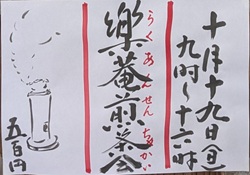 十月十九日(金)
九時〜十六時
樂菴煎茶会
らくあんせんちゃかい
五百円